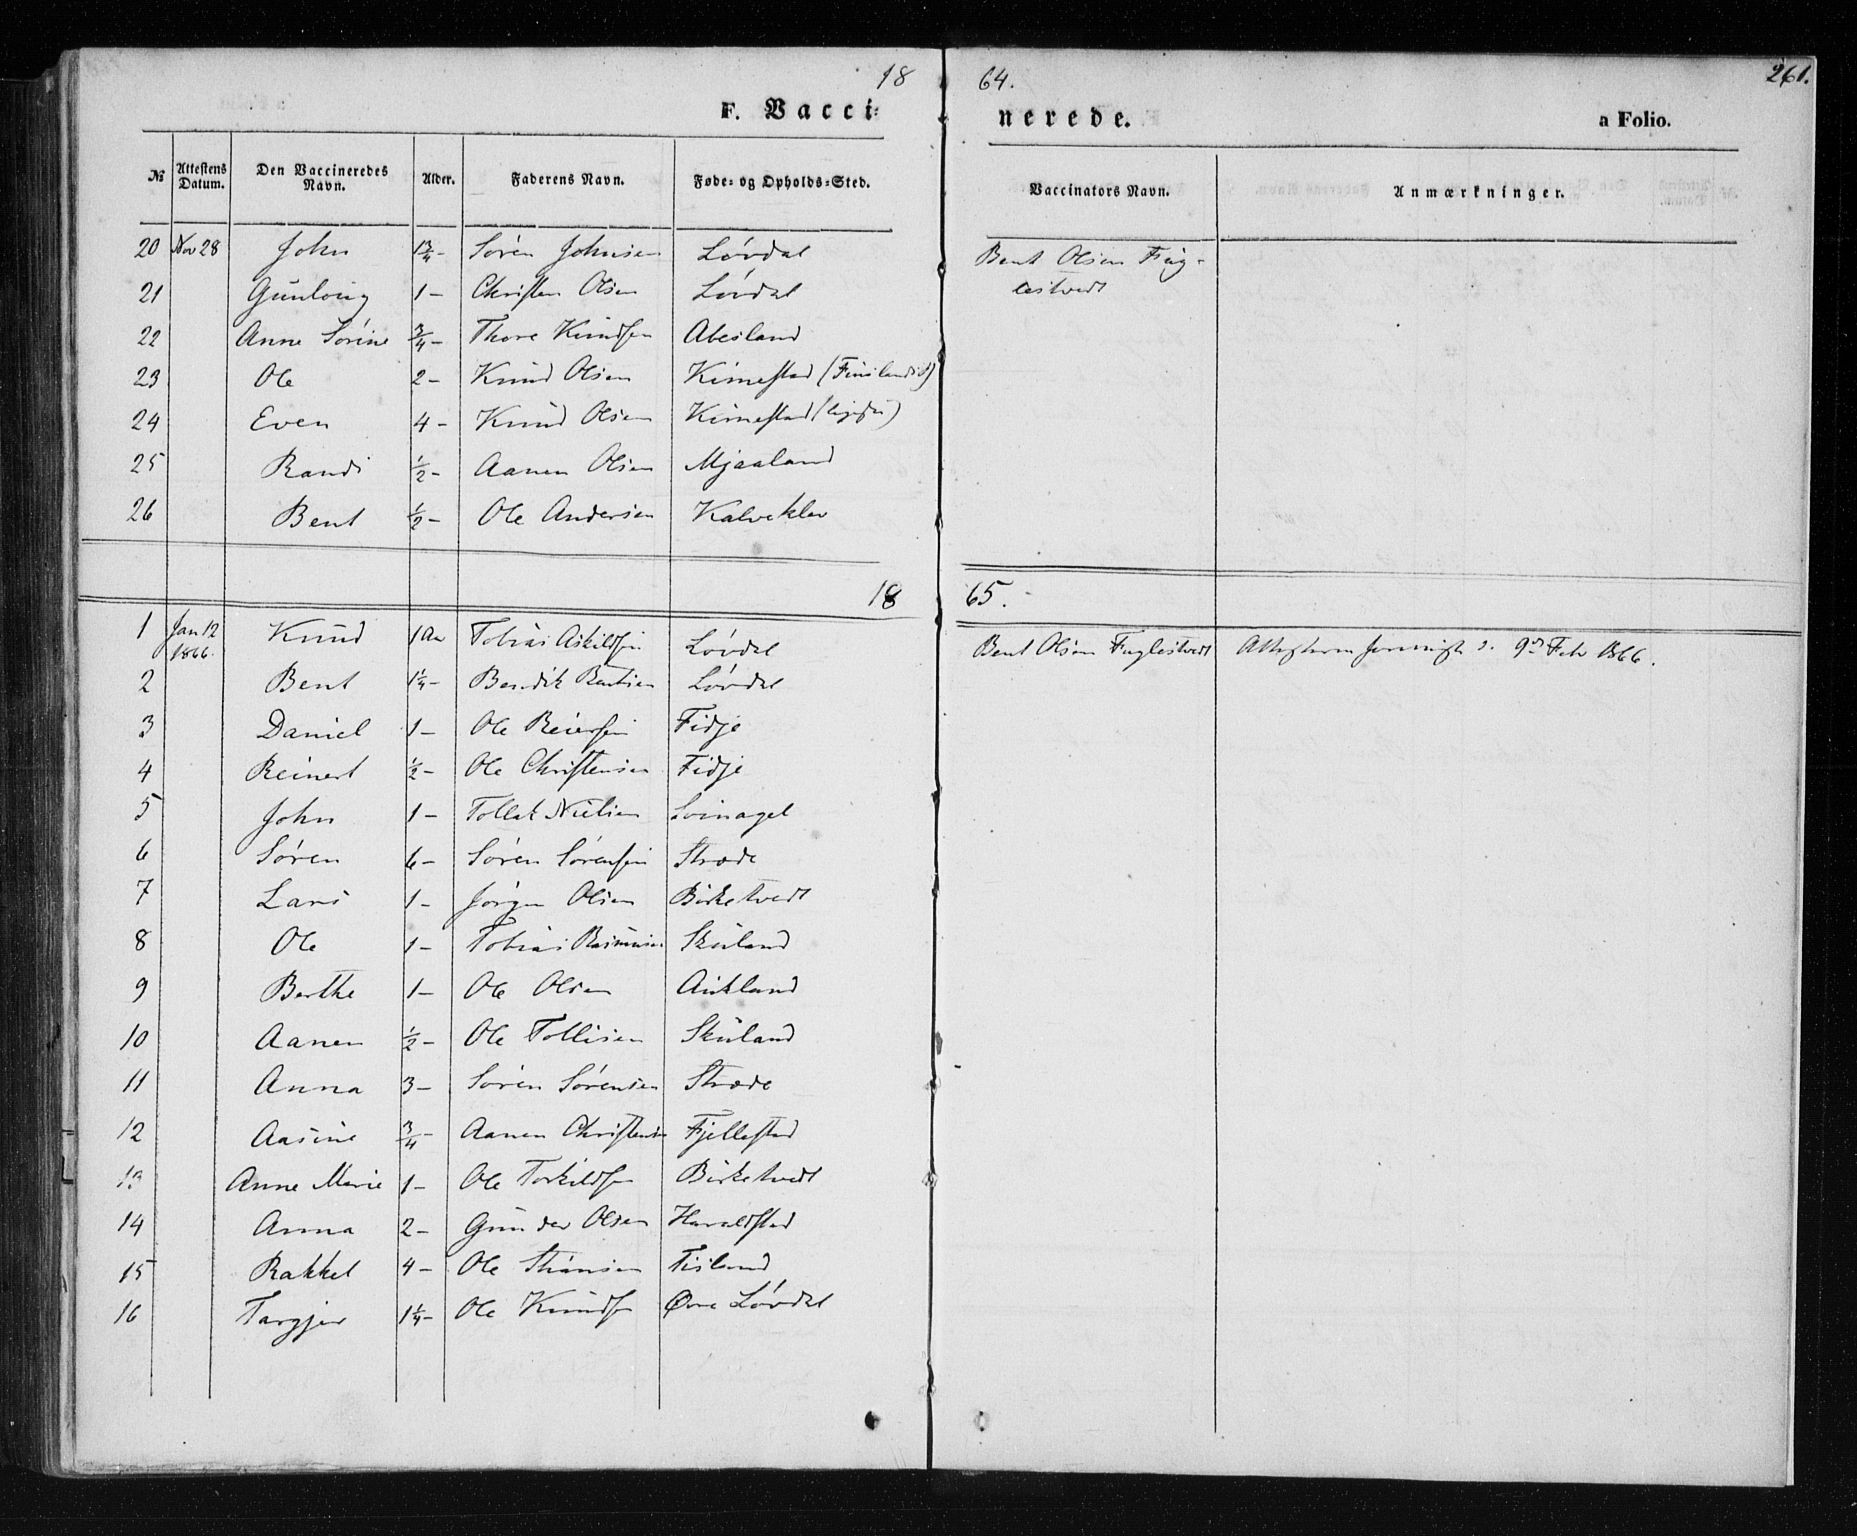 18 64. 261.
F. Vaccinerede. a Folio.
№ Attestens Datum. Den Vaccineredes Navn. Alder. Faderens Navn. Føde- og Opholds-Sted. Vaccinators Navn. Anmærkninger.
20 Nov 28 John 1 3/4 - Søren Johnsen Løvdal Bent Olsen Fug-
lestvedt
21 Gunloug 1 - Christen Olsen Løvdal
22 Anne Sørine 3/4 - Thore Knudsen Abesland
23 Ole 2 - Knud Olsen Kirnestad
24 Even 4 - Knud Olsen Kirnestad
25 Randi 1/2 - Aanen Olsen Mjaaland
26 Bent 1/2 - Ole Andersen Kalveklev
18 65.
1 Jan 12 1866. Knud 1 Aar Tobias Askildsen Løvdal Bent Olsen Fuglestvedt 9de Feb 1866.
2 Bent 1 1/4 - Bendik Bentsen Løvdal
3 Daniel 1 - Ole Reiersen Fidje
4 Reinert 1/2 - Ole Christensen Fidje
5 John 1 - Tollak Nielsen
6 Søren 6 - Søren Sørensen Stræde
7 Lars 1 - Jørgen Olsen Birketvedt
8 Ole 1 - Tobias Rasmusen Skuland
9 Berthe 1 - Ole Olsen Aukland
10 Aanen 1/2 - Ole Tollisen Skuland
11 Anna 3 - Søren Sørensen Stræde
12 Aasine 3/4 - Aanen Christensen Fjellestad
13 Anne Marie 1 - Ole Torkildsen Birketvedt
14 Anna 2 - Gunder Olsen Haraldstad
15 Rakkel 4 - Ole Tisland
16 Targjer 1 1/4 - Ole Knudsen Øvre Løvdal